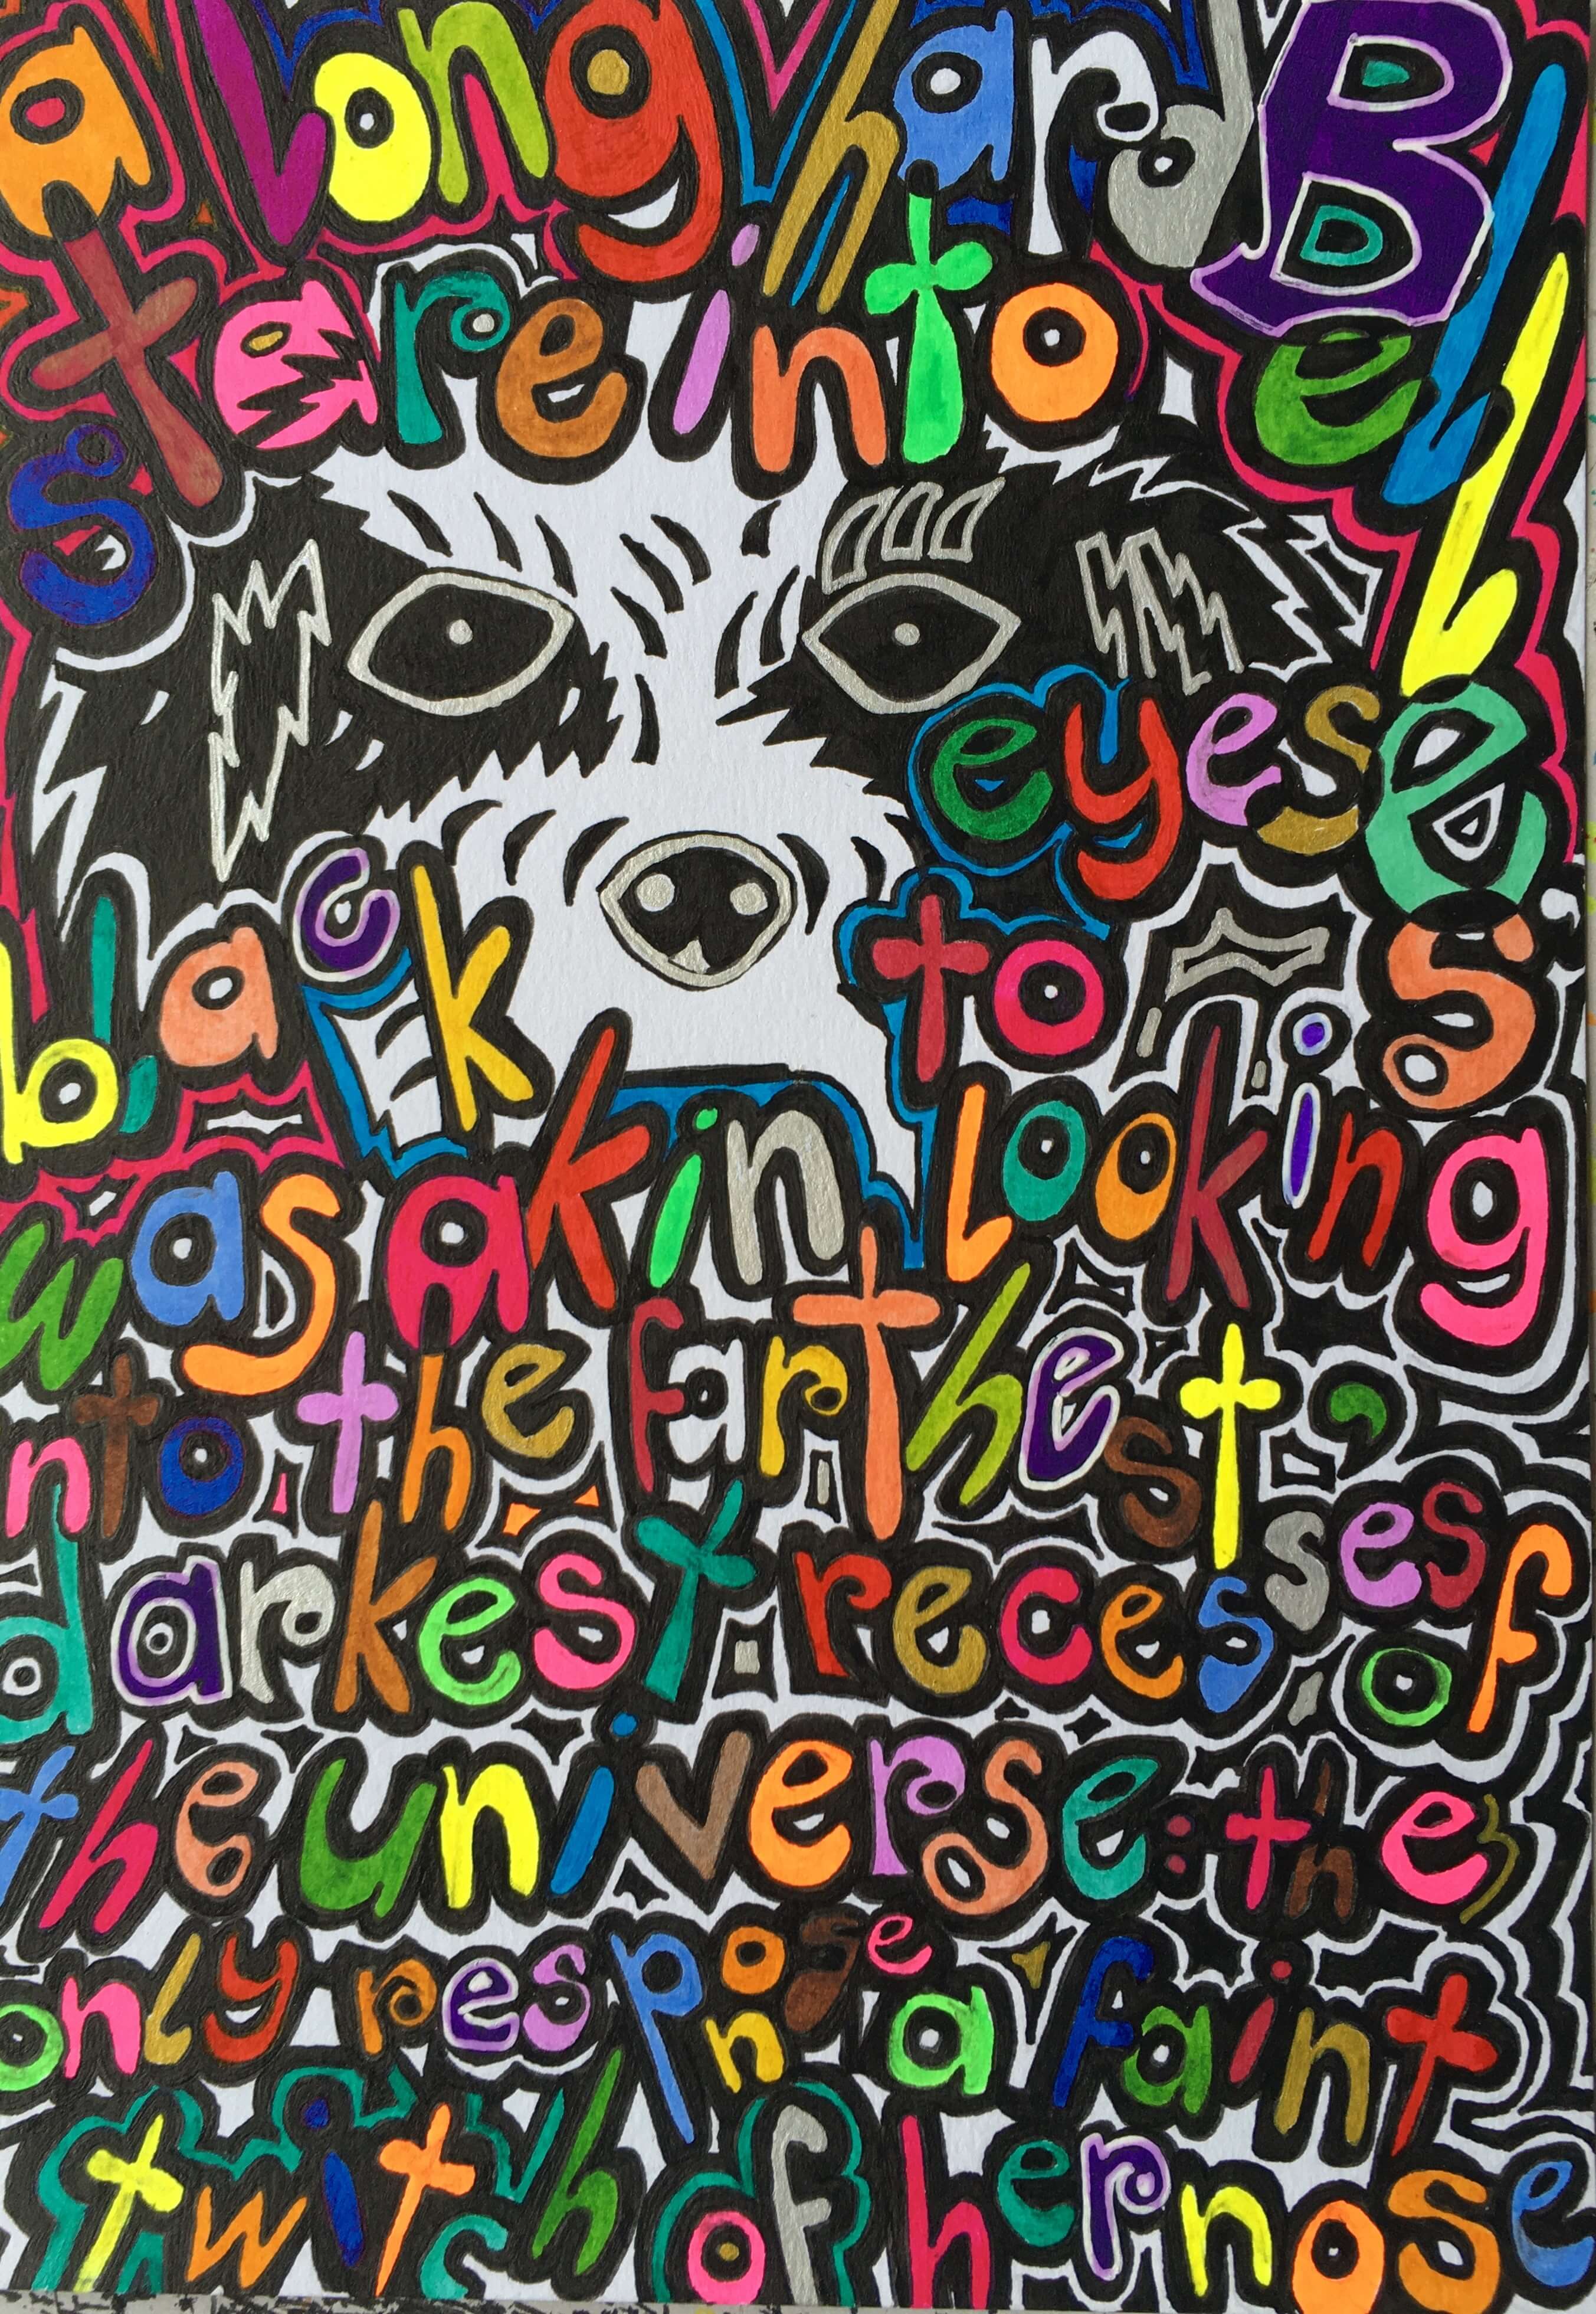 a long hard
stare into Belle's
black eyes
was akin to looking
nto the farThest,
darkest recesses of
the universe: the
only response a faint
twitch of her nose